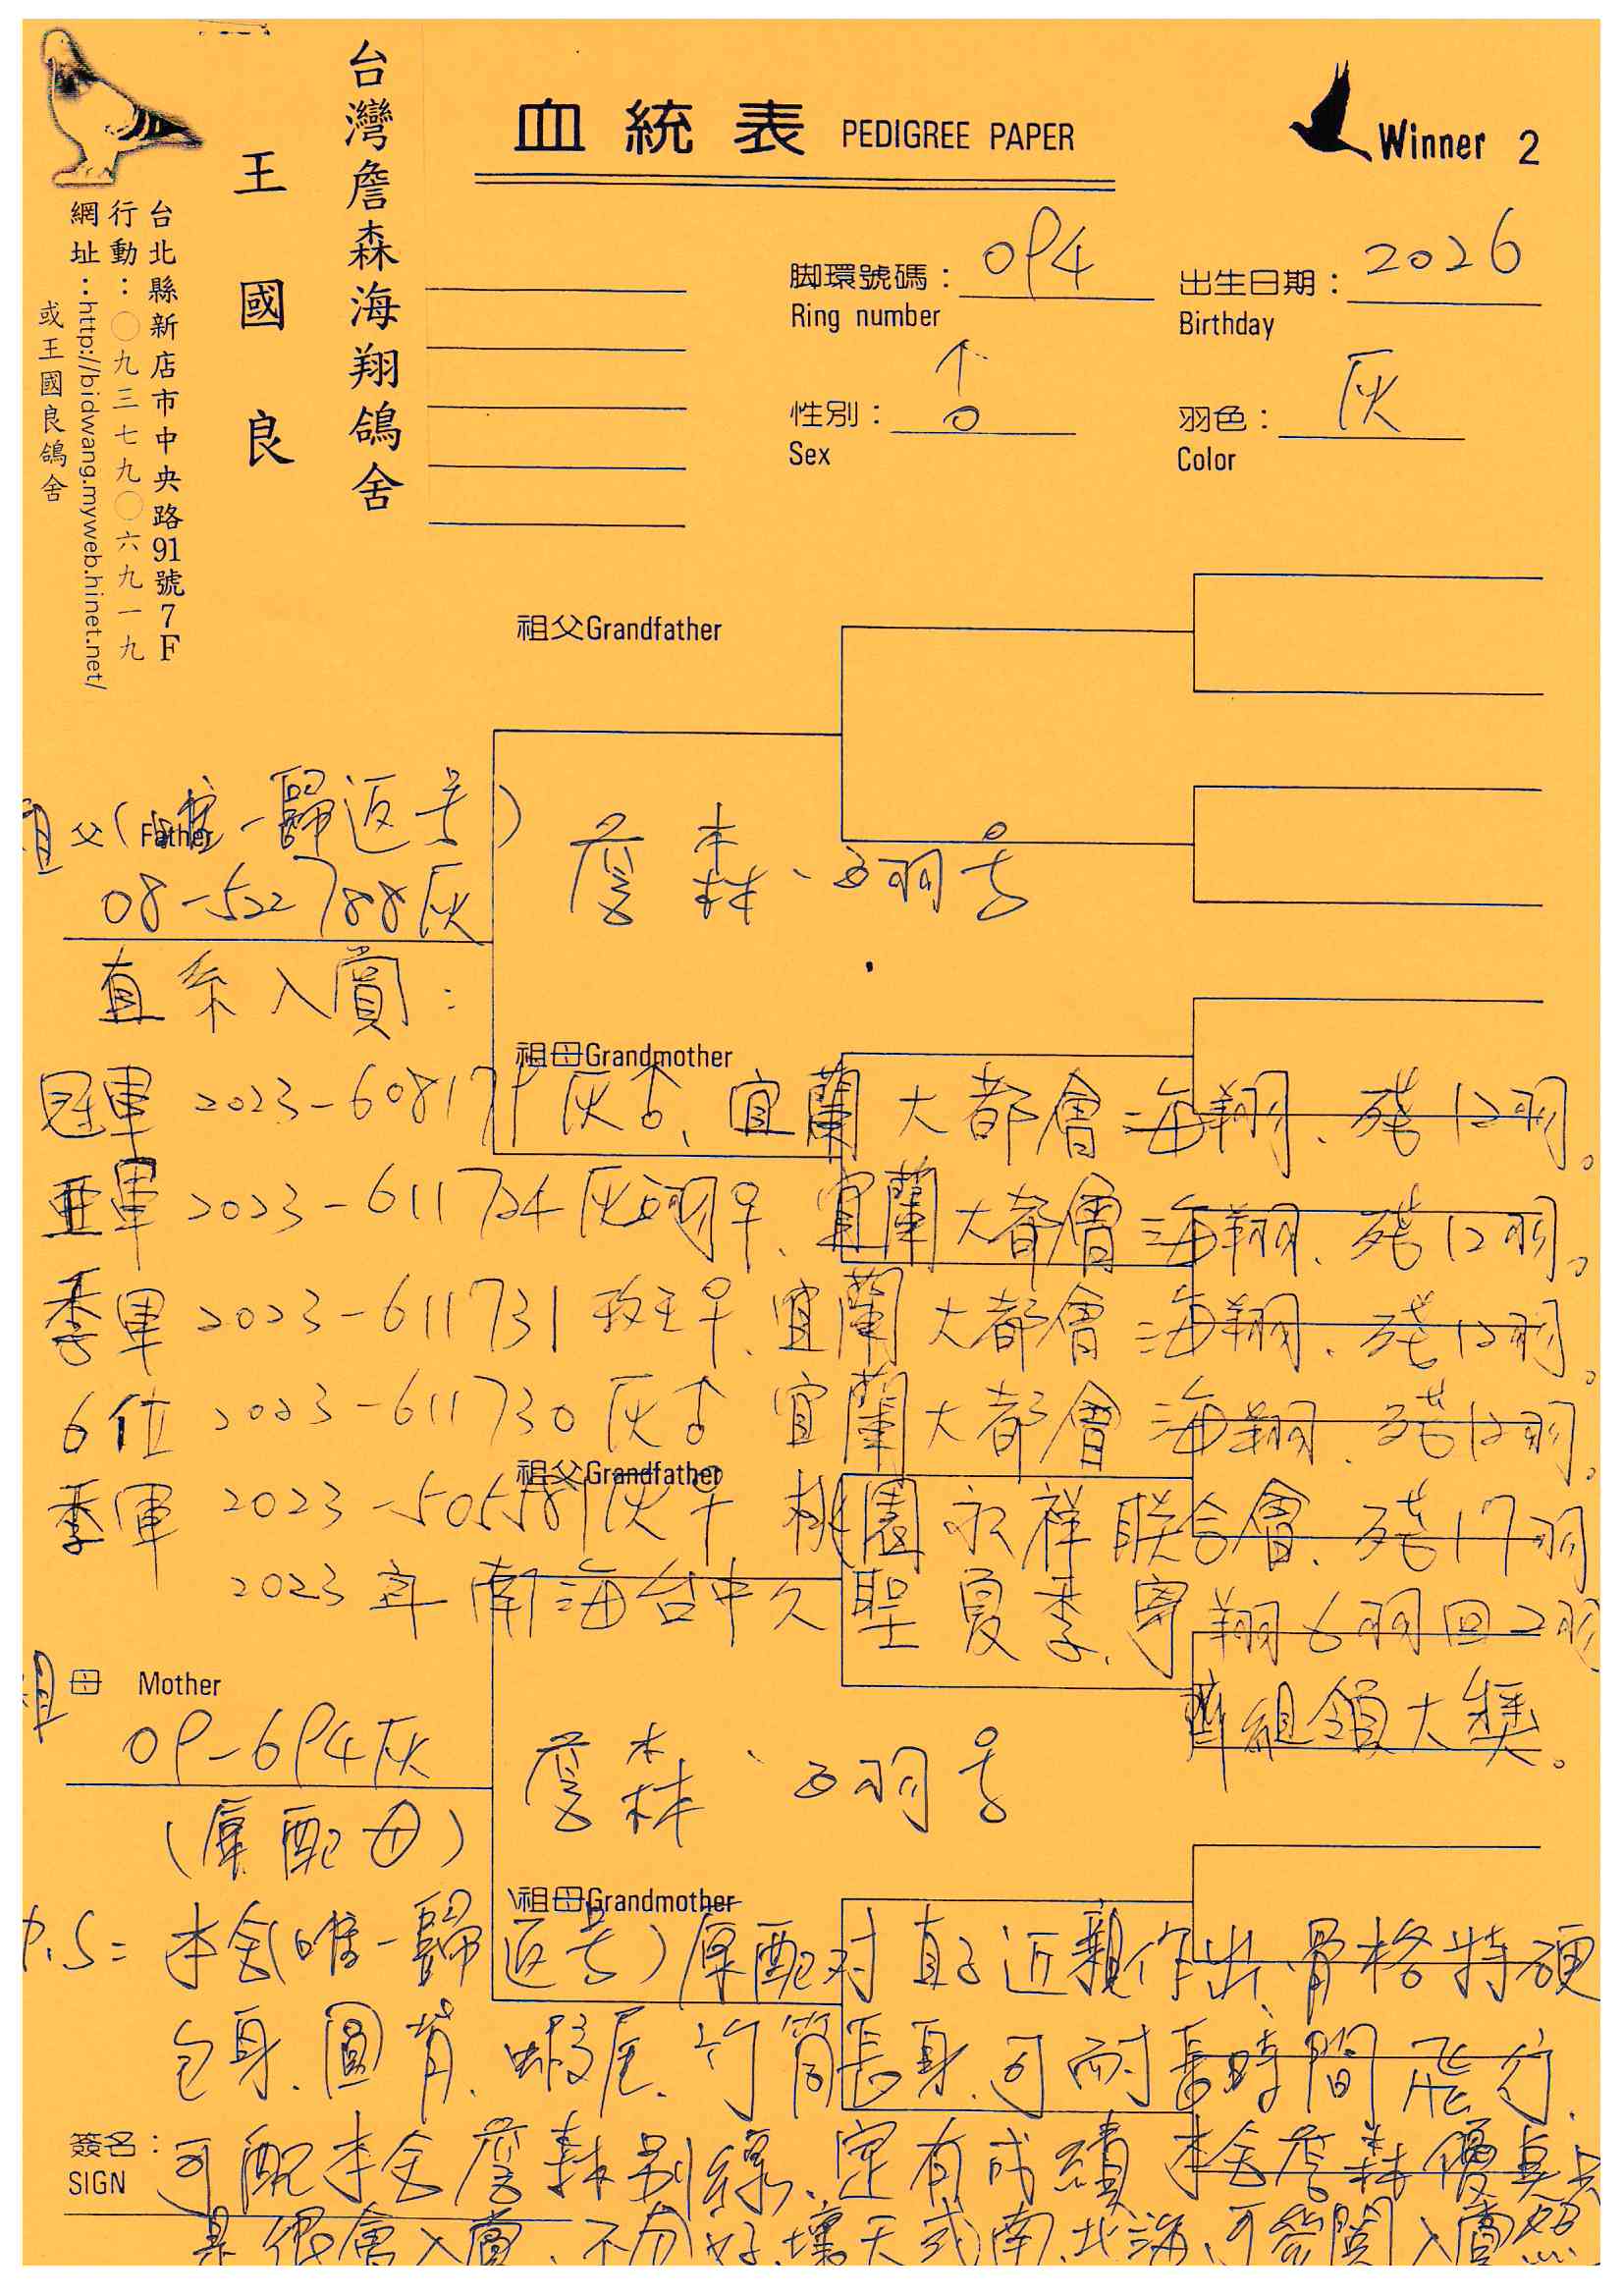 台灣詹森海翔鴿舍
王國良
台北縣新店市中央路91號7F
行動：〇九三七九〇六九一九
網址：http://bidwang.myweb.hinet.net/
或王國良鴿舍
血統表 PEDIGREE PAPER
Winner 2
脚環號碼： 094
Ring number
出生日期： 2026
Birthday
性別： ♂
Sex
羽色： 灰
Color
祖父Grandfather
祖父 Father (唯一歸返号)
08-522788灰
詹森、石羽号
直系入賞：
祖母Grandmother
冠軍 2023-608179灰♂、宜蘭大都會海翔、殘12羽。
亜軍 2023-611724灰石羽♀、宜蘭大都會海翔、殘12羽。
季軍 2023-611731斑♀、宜蘭大都會海翔、殘12羽。
6位 2023-611730灰♂ 宜蘭大都會海翔、殘12羽。
祖父Grandfather
季軍 2023-505581灰♀ 桃園永祥联合會、殘17羽
2023年南海台中久聖夏季、寄翔6羽回2羽
齊組領大獎。
祖母 Mother
09-694灰
詹森、石羽号
(原配母)
祖母Grandmother
P.S= 本舍(唯一歸返号)原配对直子近親作出、骨格特硬
包身、圓背、蝦尾、竹筒長身、可耐長時間飛行、
簽名：
SIGN
可配本舍詹森别線、定有成績 本舍詹森優真点
是很會入賞、不分好、壞天或南、北海、可答関入賞